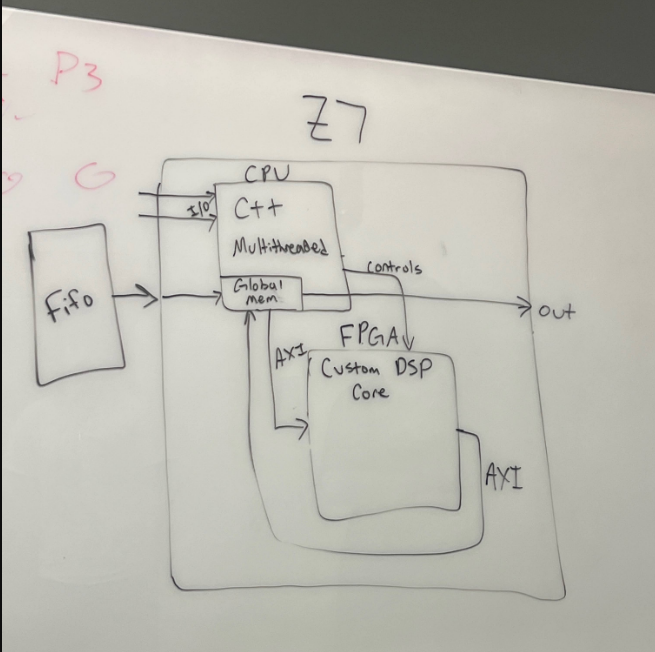 P3
G
Z7
CPU
I/O
C++
Multithreaded
Global
mem
Controls
Fifo
out
FPGA
AXI
Custom DSP
Core
AXI